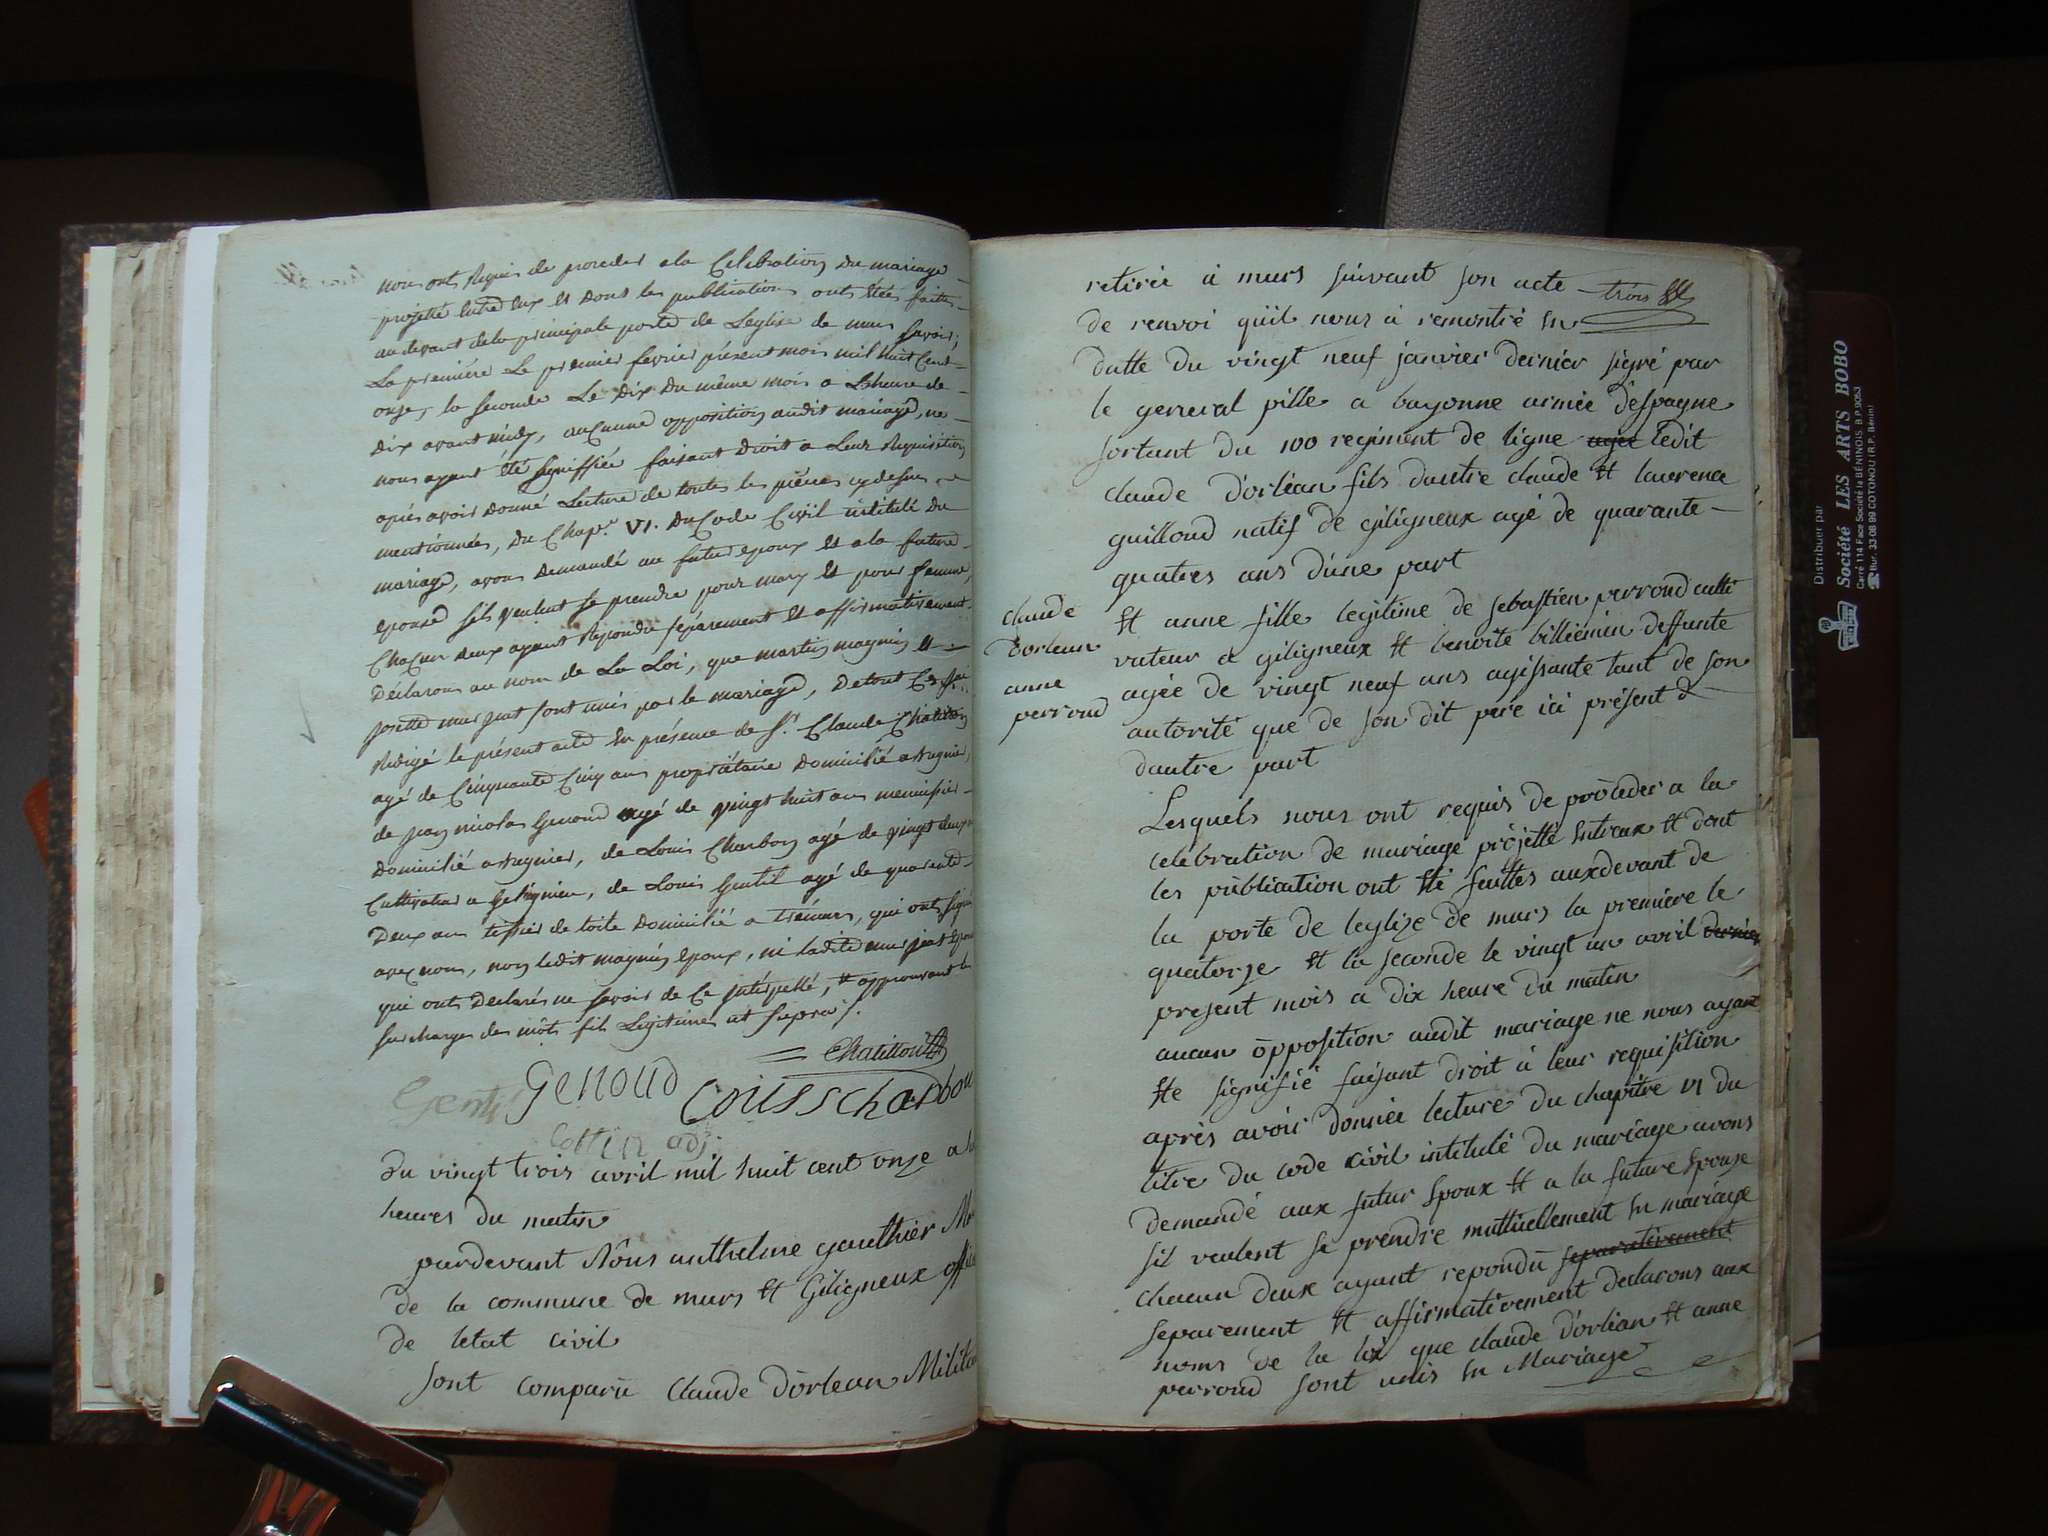 nous ont Requis de proceder a la Celebration du mariage
projetté entre eux et Dont les publications ont étées faites
au devant de la principale porte de Leglise de murs savoir;
La premiére Le premier fevrier présent mois mil huit Cent
onze, la seconde Le Dix du même mois a Lheure de
Dix avant midy, aucunne opposition audit mariage, ne
nous ayant été signiffiée faisant Droit a Leur Requisition
après avoir Donné Lecture de toutes les pièces cy dessus
mentionnées, Du Chap.e VI. Du Code Civil intitulé Du
mariage, avons Demandé au futur epoux et a la future
epouse sils veulent se prendre pour mary et pour femme,
Chacun deux ayant Repondu séparement et affirmativement
Déclarons au nom de La Loi, que martin magnin et
josette murjat sont unis par le mariage, De tout Ce
Redigé le présent acte En présence de Sr. Claude Chatillon
agé de Cinquante Cinq ans propriétaire Domicilié a
de jean nicolas Genoud agé de vingt huit ans menuisier
Domicilié a, de Louis Charbon agé de vingt deux
Cultivateur a Geligneu, de Louis Gentil agé de quarante
Deux ans tissier de toile Domicilié a, qui ont signé
avec nous, non ledit magnin epoux, ni ladite murjat Epouse
qui ont Déclarés ne savoir de Ce intérpellé, et approuvant la
surcharge des mots fils Legitimes ut supra ./.
Chatillon
Gentil Genoud Louiss charbon
Cottin adj:
du vingt trois avril mil huit cent onze a
heures du matin
pardevant Nous anthelme gauthier M
de la commune de murs et Giligneux offi
de letat civil
sont comparu claude D'orlean Milit
retirée à murs suivant son acte trois
de renvoi qu'il nous à remontré en
datte du vingt neuf janvier dernier signé par
le general pille a bayonne armée d'espagne
sortant du 100 regiment de ligne agé ledit
claude D'orléan fils dautre claude et laurence
guilloud natif de giligneux agé de quarante
quatres ans d'une part
claude
Dorlean
anne
perroud
et anne fille legitime de sebastien perroud culti
vateur a giligneux et benoite billiemin deffunte
agée de vingt neuf ans agissante tant de son
autorité que de son dit pere ici présent d
dautre part
Lesquels nous ont requis de procéder a la
celebration de mariage projetté entreux et dont
les publication ont été faittes auxdevant de
la porte de leglize de murs la première le
quatorze et la seconde le vingt un avril dernier
present mois a dix heure du matin
aucun opposition audit mariage ne nous ayant
ete signifié faisant droit à leur requisition
après avoir donnée lecture du chapitre VI du
titre du code civil intitulé du mariage avons
demandé aux futur epoux et a la future epouse
sil veulent se prendre mutuellement en mariage
chacun deux ayant repondu separativement
separement et affirmativement declarons aux
noms de la loi que claude D'orléan et anne
perroud sont unis en Mariage
Distribuer par
Société LES ARTS BOBO
Carré 1114 Face Société la BÉNINOIS. B.P.9053
Bur. 33-08 99 COTONOU (R.P. Bénin)